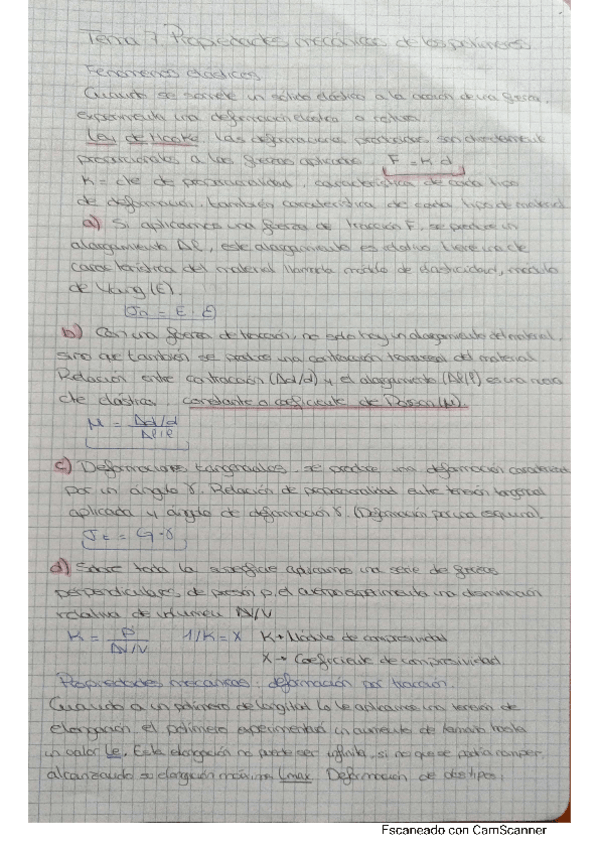 Tema 7. Propiedades mecánicas de los polímeros
Fenómenos elásticos
Cuando se somete un sólido elástico a la acción de una fuerza,
experimenta una deformación elástica o
Ley de Hooke las deformaciones producidas, son directamente
proporcionales a las fuerzas aplicadas F = K d
K = cte de proporcionalidad, característica de cada tipo
de deformación, también característica de cada tipo de material
a) Si aplicamos una fuerza de tracción F, se produce un
alargamiento Δl, este alargamiento es elástico tiene una cte
característica del material llamada módulo de elasticidad, módulo
de Young (E).
σn = E · ε
b) Con una fuerza de tracción, no solo hay un alargamiento del material,
sino que también se produce una contracción transversal del material
Relación entre contracción (Δd/d) y el alargamiento (Δl/l) es una nueva
cte elástica, constante o coeficiente de Poisson (μ).
μ = Δd/d / Δl/l
c) Deformaciones tangenciales. se produce una deformación caracterizada
por un ángulo γ. Relación de proporcionalidad entre tensión tangencial
aplicada y ángulo de deformación γ. (Deformación por una esquina).
σt = G · γ
d) Sobre toda la superficie aplicamos una serie de fuerzas
perpendiculares, de presión p, el cuerpo experimenta una disminución
relativa de volumen ΔV/V
K = P / ΔV/V 1/K = X K → Módulo de compresividad
X → Coeficiente de compresividad
Propiedades mecánicas: deformación por tracción.
Cuando a un polímero de longitud lo le aplicamos una tensión de
elongación, el polímero experimentará un aumento de tamaño hasta
un valor le. Esta elongación no puede ser infinita, si no que se podría romper,
alcanzando su elongación máxima lmax. Deformación de dos tipos:
Escaneado con CamScanner